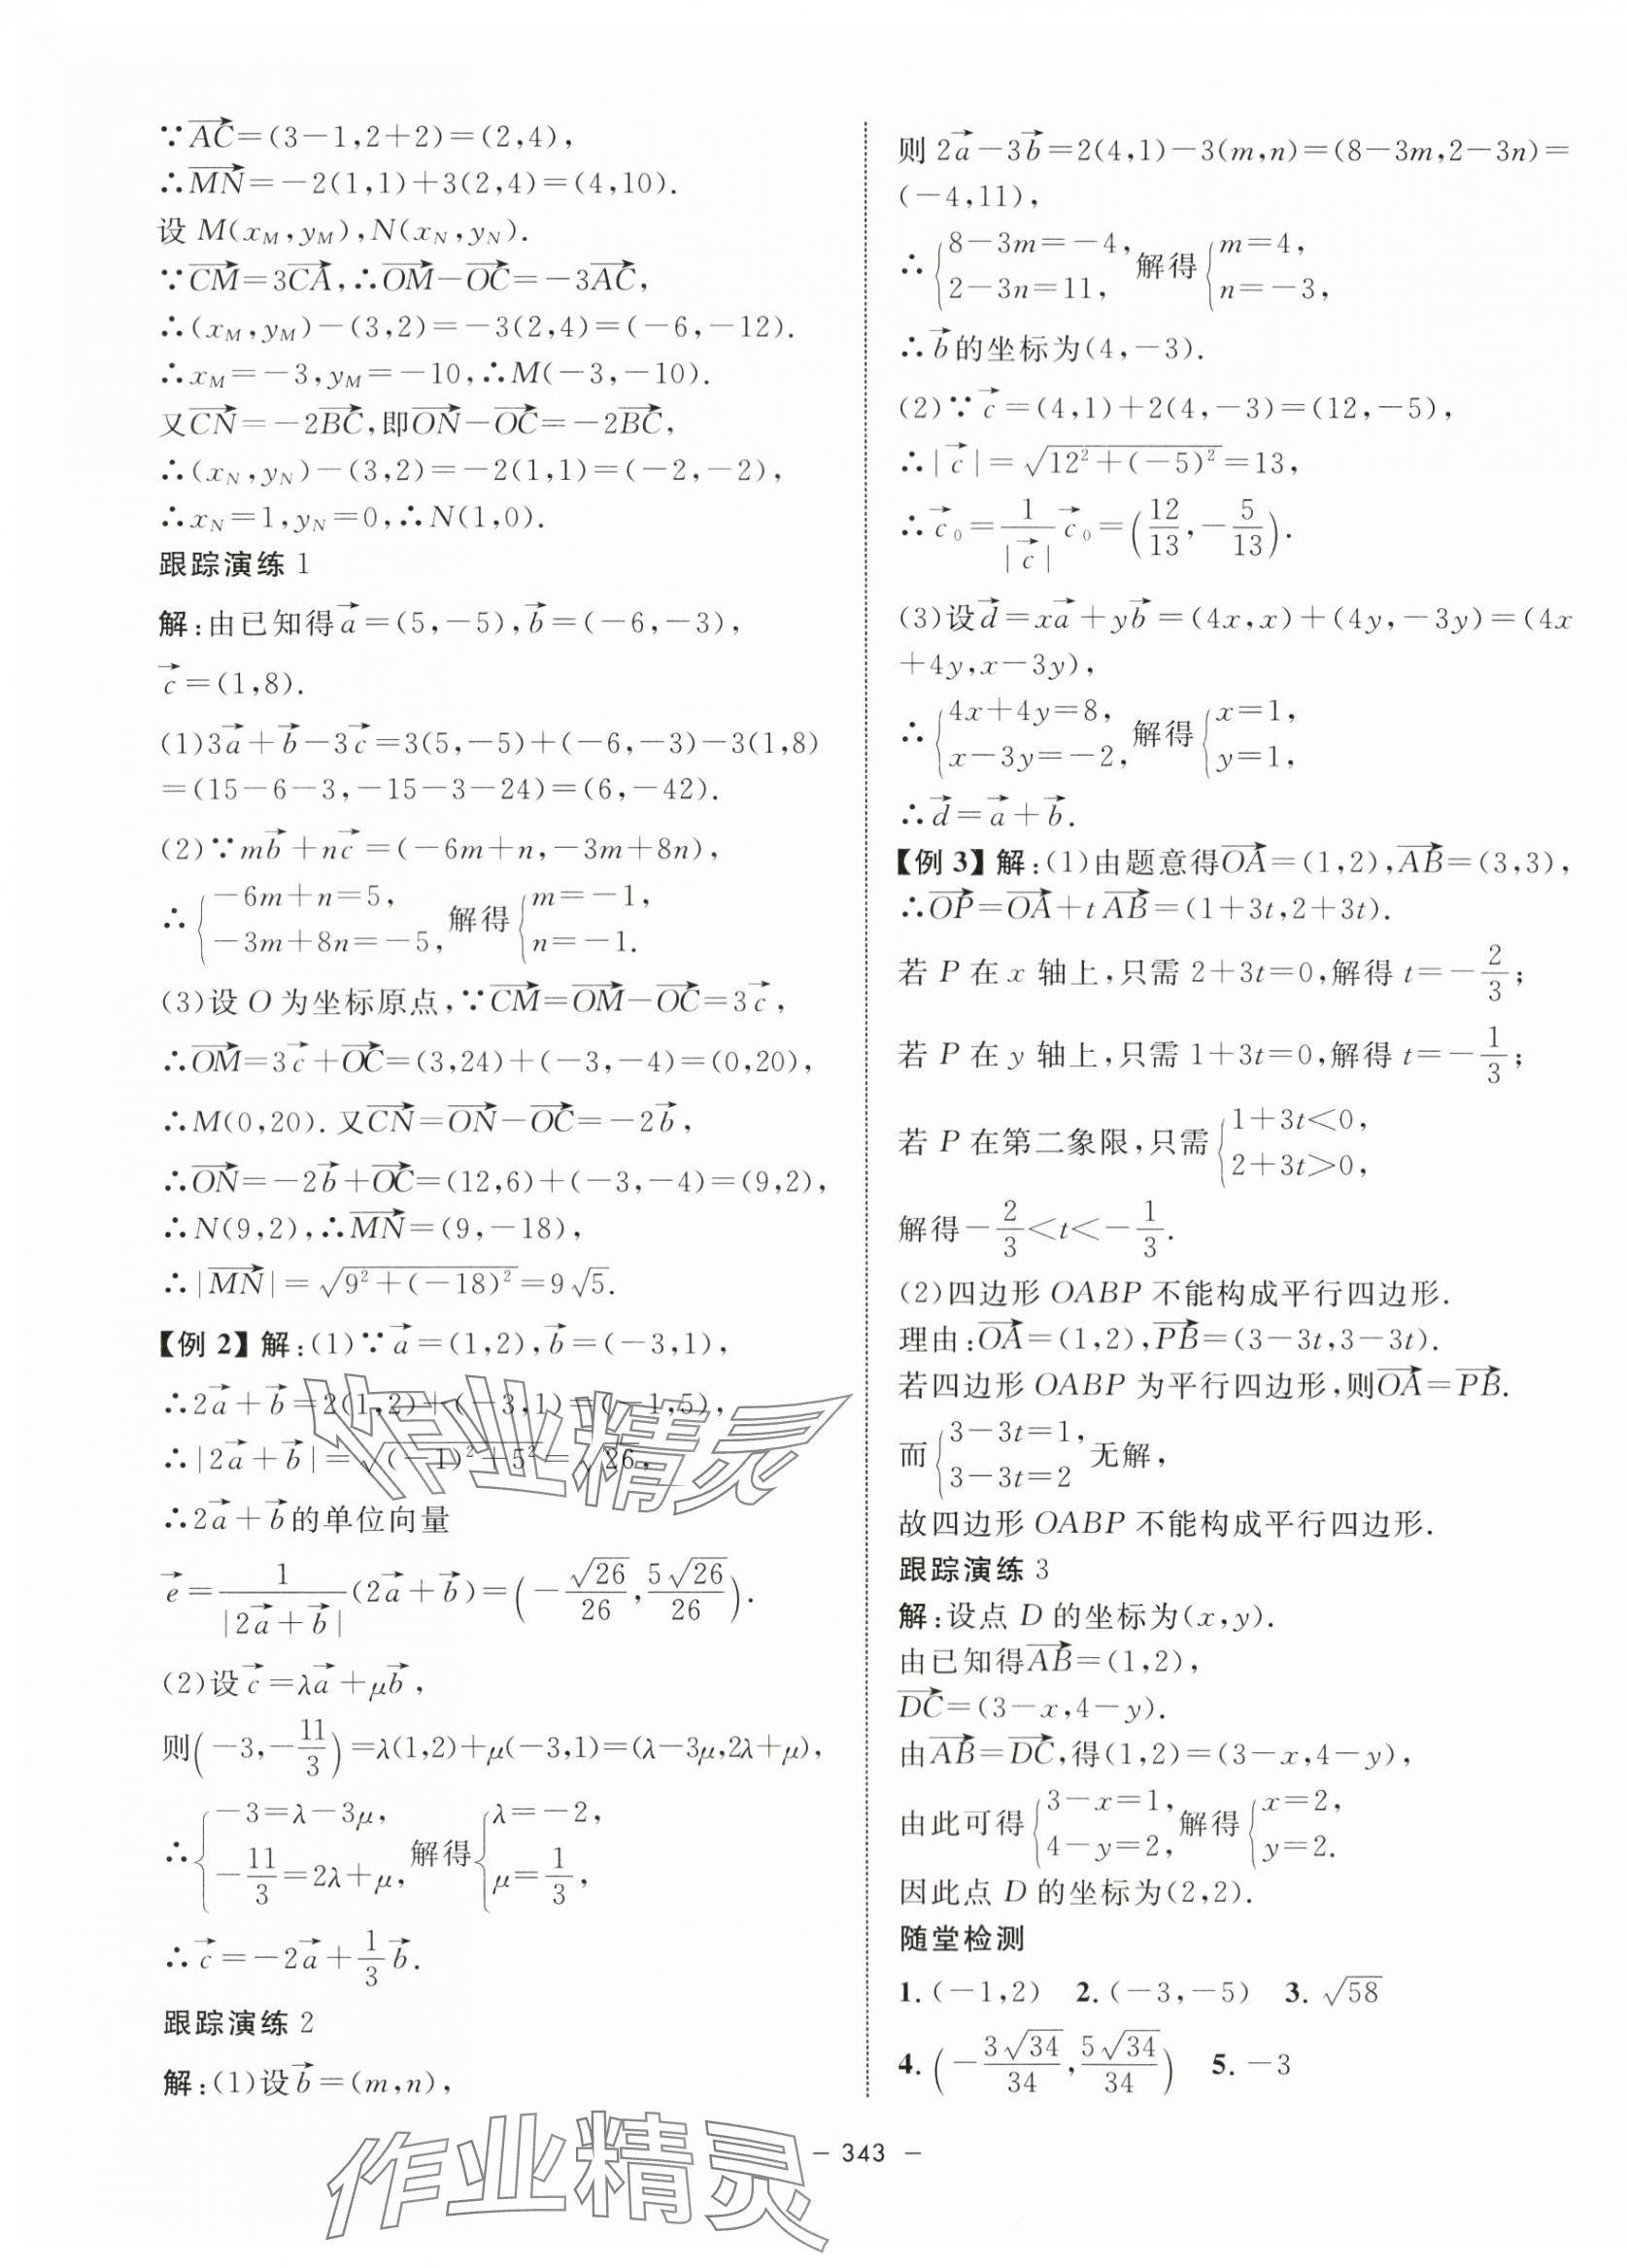 ∵AC→=(3-1,2+2)=(2,4),
∴MN→=-2(1,1)+3(2,4)=(4,10).
设 M(x_M,y_M),N(x_N,y_N).
∵CM→=3CA→,∴OM→-OC→=-3AC→,
∴(x_M,y_M)-(3,2)=-3(2,4)=(-6,-12).
∴x_M=-3,y_M=-10,∴M(-3,-10).
又CN→=-2BC→,即ON→-OC→=-2BC→,
∴(x_N,y_N)-(3,2)=-2(1,1)=(-2,-2),
∴x_N=1,y_N=0,∴N(1,0).
跟踪演练 1
解:由已知得a→=(5,-5),b→=(-6,-3),
c→=(1,8).
(1)3a→+b→-3c→=3(5,-5)+(-6,-3)-3(1,8)
=(15-6-3,-15-3-24)=(6,-42).
(2)∵mb→+nc→=(-6m+n,-3m+8n),
∴{-6m+n=5, -3m+8n=-5, 解得{m=-1, n=-1.
(3)设 O 为坐标原点,∵CM→=OM→-OC→=3c→,
∴OM→=3c→+OC→=(3,24)+(-3,-4)=(0,20),
∴M(0,20). 又CN→=ON→-OC→=-2b→,
∴ON→=-2b→+OC→=(12,6)+(-3,-4)=(9,2),
∴N(9,2),∴MN→=(9,-18),
∴|MN→|=√(9²+(-18)²)=9√5.
【例 2】解:(1)∵a→=(1,2),b→=(-3,1),
∴2a→+b→=2(1,2)+(-3,1)=(-1,5),
∴|2a→+b→|=√((-1)²+5²)=√26,
∴2a→+b→的单位向量
e→=1/|2a→+b→|(2a→+b→)=(-√26/26,5√26/26).
(2)设c→=λa→+μb→,
则(-3,-11/3)=λ(1,2)+μ(-3,1)=(λ-3μ,2λ+μ),
∴{-3=λ-3μ, -11/3=2λ+μ, 解得{λ=-2, μ=1/3,
∴c→=-2a→+1/3b→.
跟踪演练 2
解:(1)设b→=(m,n),
则 2a→-3b→=2(4,1)-3(m,n)=(8-3m,2-3n)=
(-4,11),
∴{8-3m=-4, 2-3n=11, 解得{m=4, n=-3,
∴b→的坐标为(4,-3).
(2)∵c→=(4,1)+2(4,-3)=(12,-5),
∴|c→|=√(12²+(-5)²)=13,
∴c→₀=1/|c→| c→₀=(12/13,-5/13).
(3)设d→=xa→+yb→=(4x,x)+(4y,-3y)=(4x
+4y,x-3y),
∴{4x+4y=8, x-3y=-2, 解得{x=1, y=1,
∴d→=a→+b→.
【例 3】解:(1)由题意得OA→=(1,2),AB→=(3,3),
∴OP→=OA→+tAB→=(1+3t,2+3t).
若 P 在 x 轴上,只需 2+3t=0,解得 t=-2/3;
若 P 在 y 轴上,只需 1+3t=0,解得 t=-1/3;
若 P 在第二象限,只需{1+3t<0, 2+3t>0,
解得-2/3<t<-1/3.
(2)四边形 OABP 不能构成平行四边形.
理由:OA→=(1,2),PB→=(3-3t,3-3t).
若四边形 OABP 为平行四边形,则OA→=PB→.
而{3-3t=1, 3-3t=2 无解,
故四边形 OABP 不能构成平行四边形.
跟踪演练 3
解:设点 D 的坐标为(x,y).
由已知得AB→=(1,2),
DC→=(3-x,4-y).
由AB→=DC→,得(1,2)=(3-x,4-y),
由此可得{3-x=1, 4-y=2, 解得{x=2, y=2.
因此点 D 的坐标为(2,2).
随堂检测
1. (-1,2) 2. (-3,-5) 3. √58
4. (-3√34/34,5√34/34) 5. -3
- 343 -
作业精灵
作业精灵